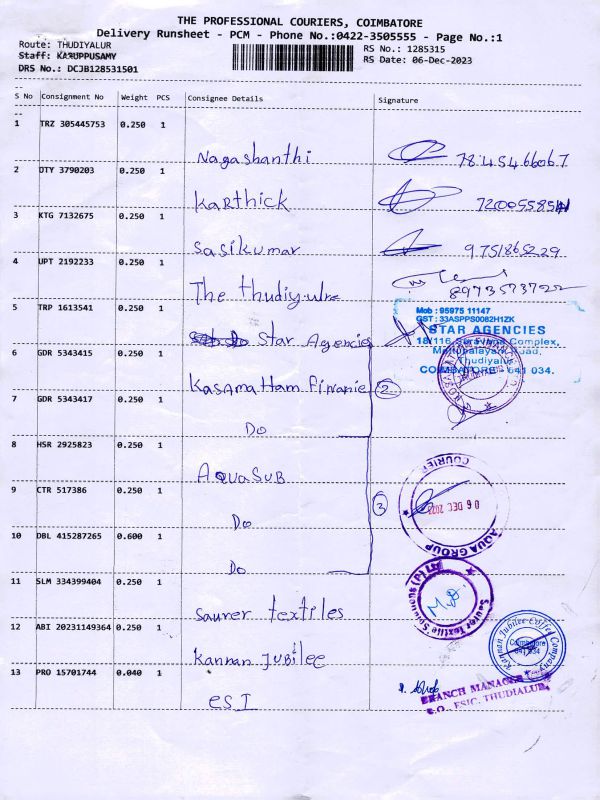 THE PROFESSIONAL COURIERS, COIMBATORE
Delivery Runsheet - PCM - Phone No.:0422-3505555 - Page No.:1
Route: THUDIYALUR RS No.: 1285315
Staff: KARUPPUSAMY RS Date: 06-Dec-2023
DRS No.: DCJB128531501
S No Consignment No Weight PCS Consignee Details Signature
1 TRZ 305445753 0.250 1
Nagashanthi 7845466067
2 DTY 3790203 0.250 1
Karthick
3 KTG 7132675 0.250 1
Sasikumar 9751865229
4 UPT 2192233 0.250 1
The 8973573722
5 TRP 1613541 0.250 1
Star Agencies
Mob : 95975 11147
GST : 33ASPPS0082H1ZK
STAR AGENCIES
18/116 Complex,
Road,
Thudiyalur
COIMBATORE - 641 034.
6 GDR 5343415 0.250 1
Kasamattam Finanie 2
7 GDR 5343417 0.250 1
Do
8 HSR 2925823 0.250 1
AquaSUB
COURIER
06 DEC 2023
AQUA GROUP
9 CTR 517386 0.250 1
Do 3
10 DBL 415287265 0.600 1
Do
11 SLM 334399404 0.250 1
Saurer textiles
12 ABI 20231149364 0.250 1
Kannan Jubilee
Kannan Jubilee Coffee Company
Coimbatore
641 034
13 PRO 15701744 0.040 1
ESI
BRANCH MANAGER
ESIC, THUDIALUR